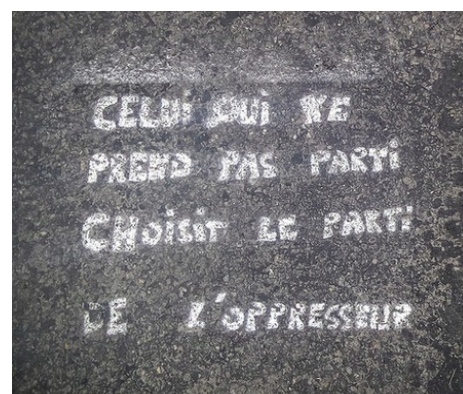 CELUI QUI NE
PREND PAS PARTI
CHOISIT LE PARTI
DE L'OPPRESSEUR